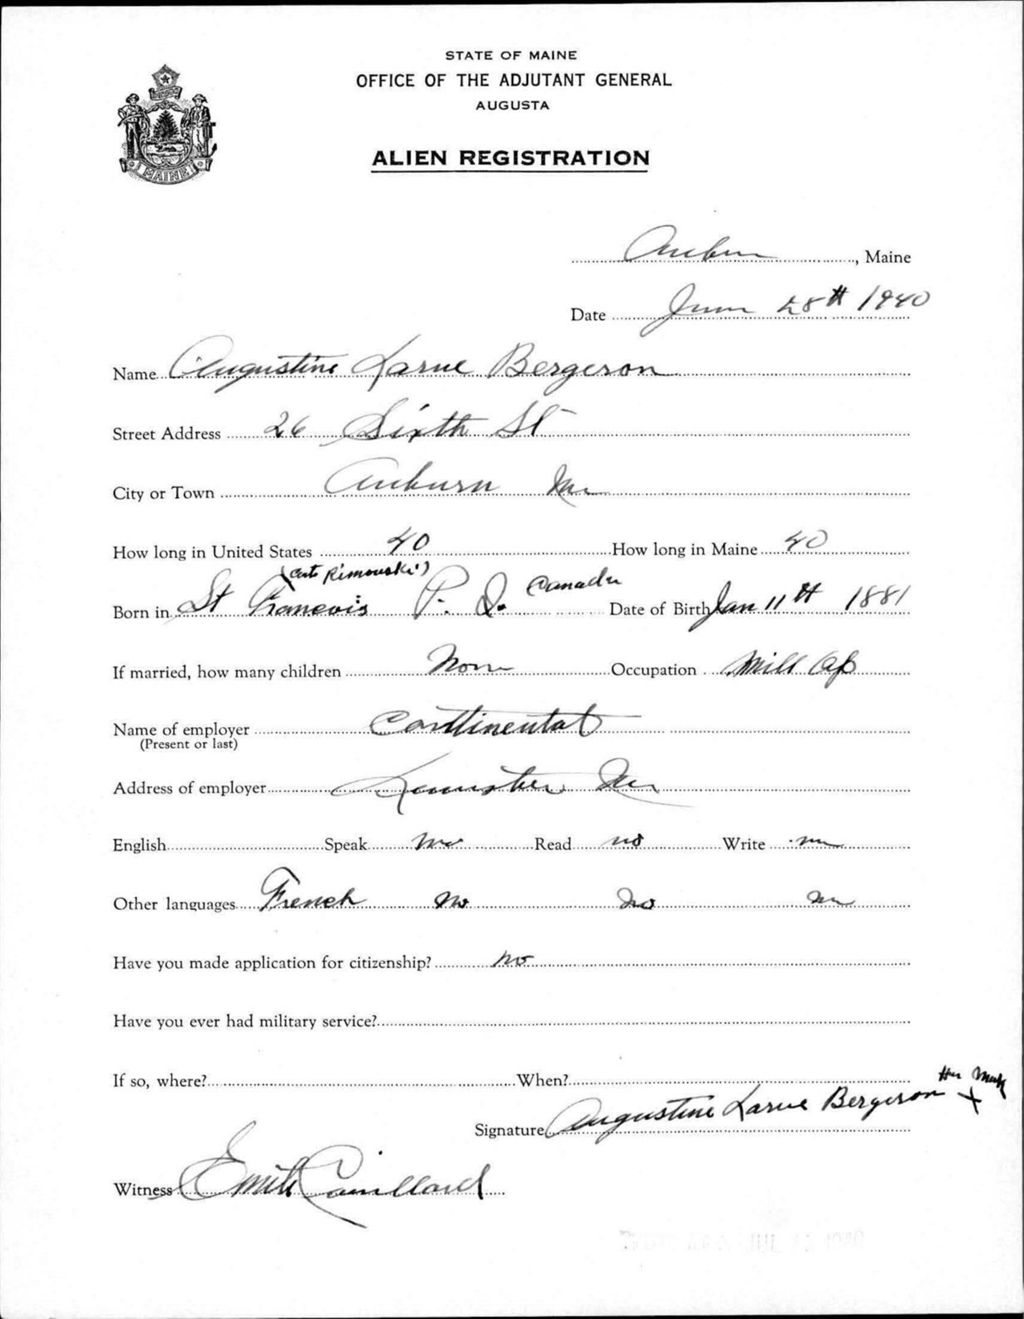 STATE OF MAINE
OFFICE OF THE ADJUTANT GENERAL
AUGUSTA
ALIEN REGISTRATION
MAINE
Auburn, Maine
Date June 28th 1940
Name Augustine Larue Bergeron
Street Address 26 Sixth St
City or Town Auburn Me
How long in United States 40 How long in Maine 40
(Cte Rimouski)
Born in St Francois P. Q. Canada Date of Birth Jan 11th 1881
If married, how many children None Occupation Mill Op
Name of employer Continental
(Present or last)
Address of employer Lewiston Me
English Speak no Read no Write no
Other languages French no no no
Have you made application for citizenship? no
Have you ever had military service?
If so, where? When?
Her Mark
Signature Augustine Larue Bergeron X
Witness Emile
JUL 1940